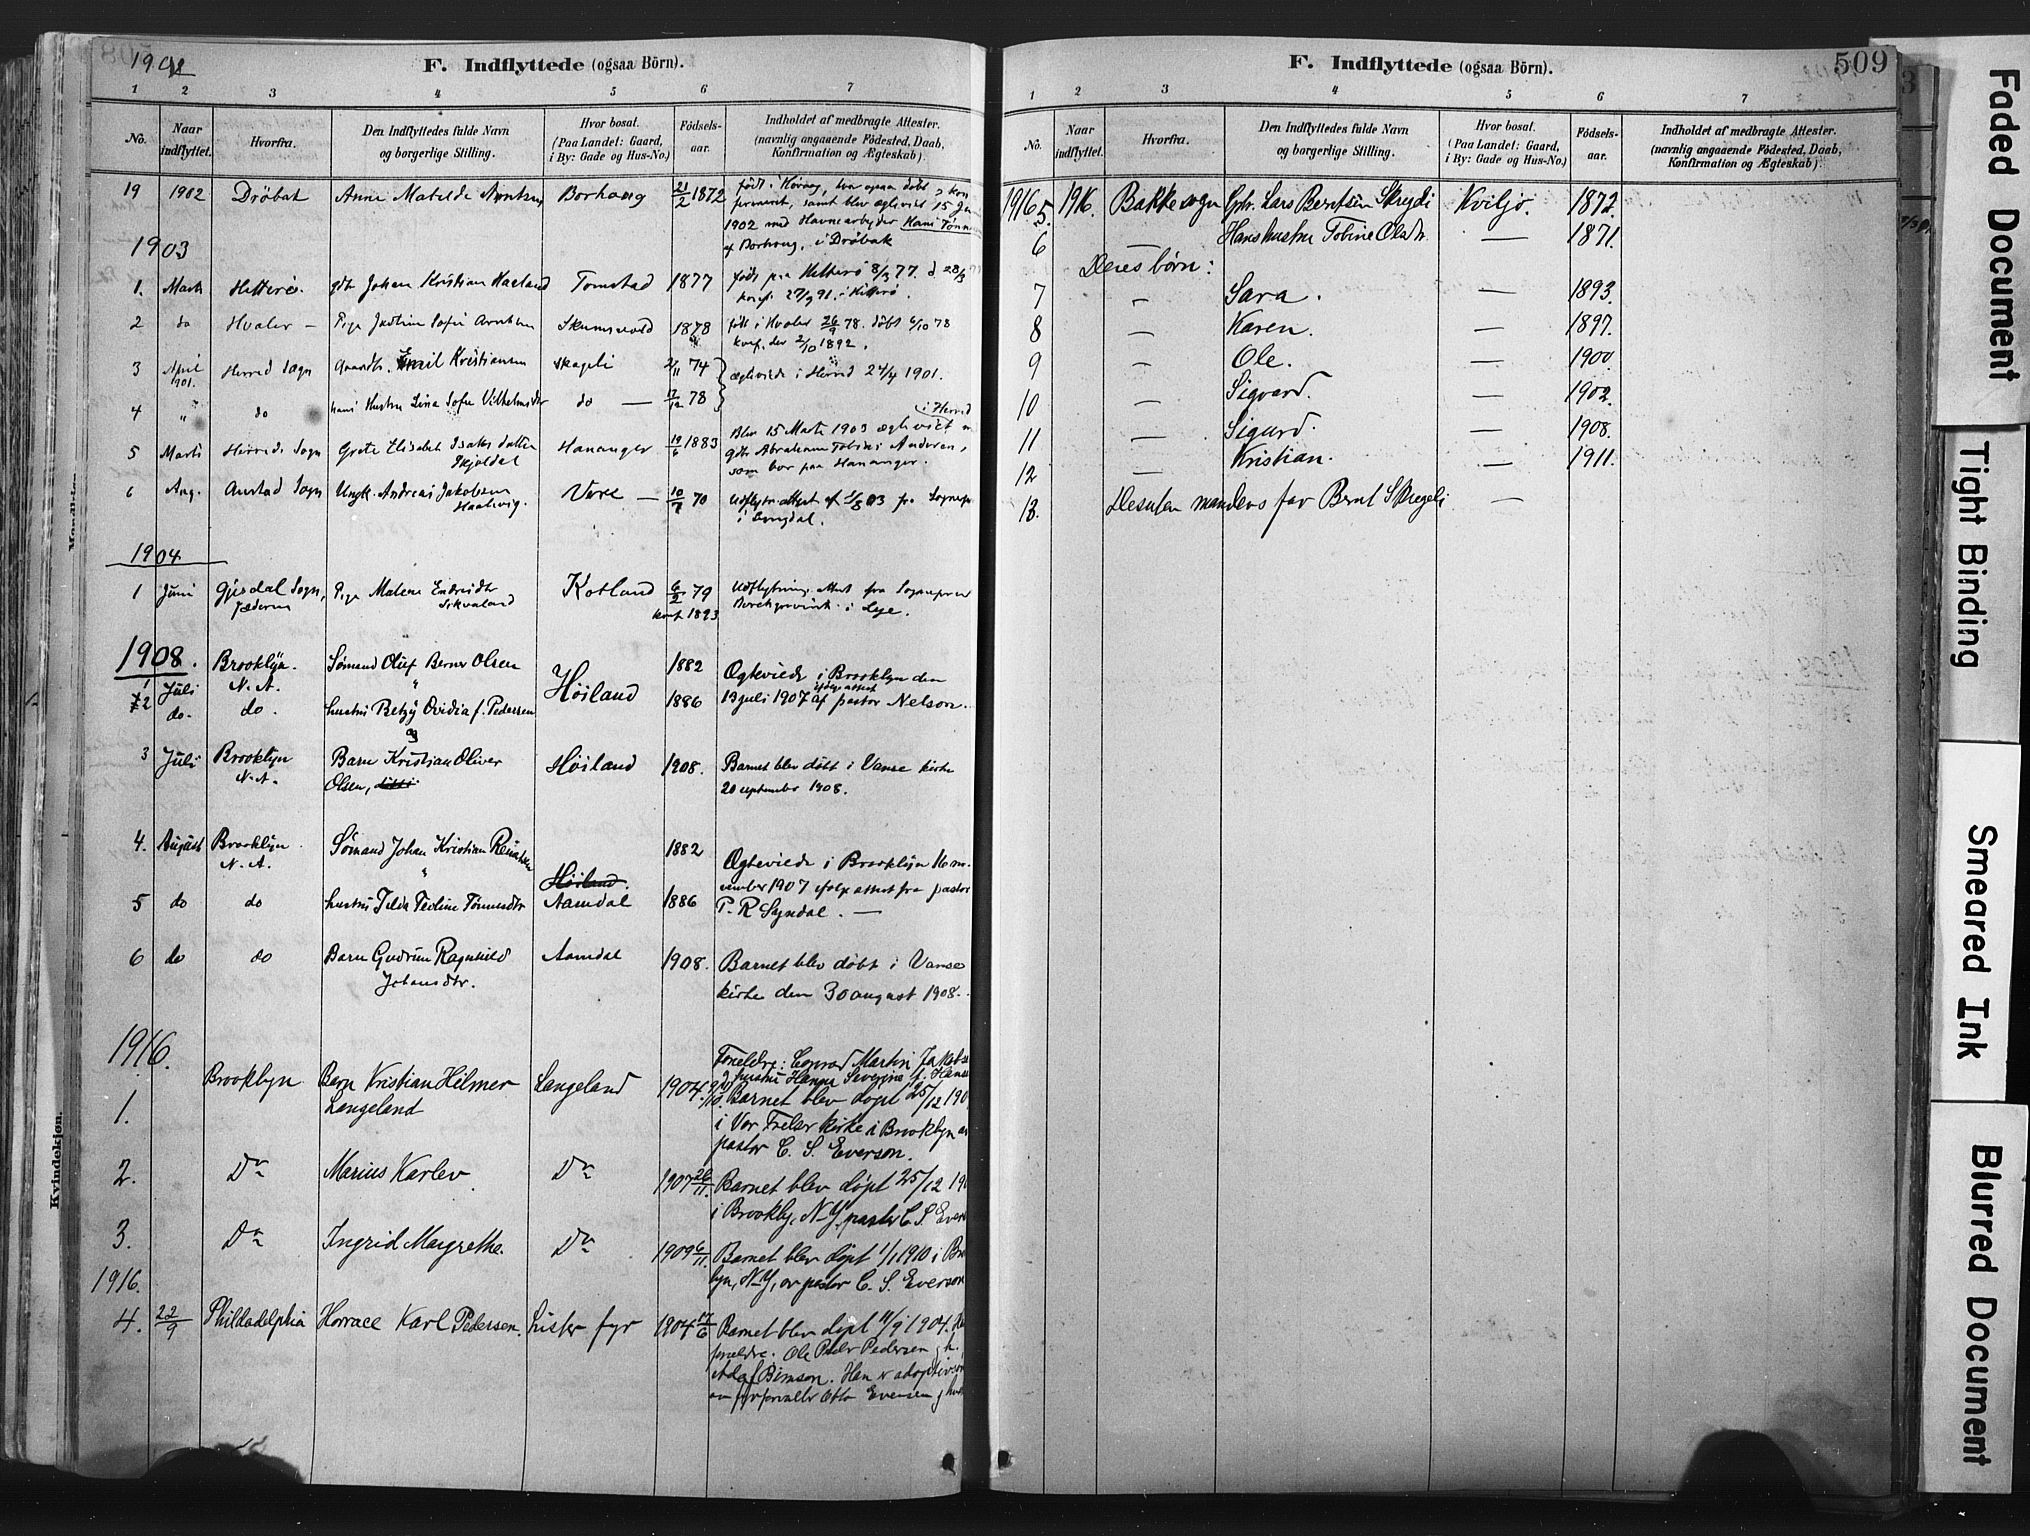 1902
F. Indflyttede (ogsaa Börn).
1 2 3 4 5 6 7
No.
Naar indflyttet.
Hvorfra.
Den Indflyttedes fulde Navn og borgerlige Stilling.
Hvor bosat. (Paa Landet: Gaard, i By: Gade og Hus-No.)
Födsels-aar.
Indholdet af medbragte Attester. (navnlig angaaende Födested, Daab, Konfirmation og Ægteskab).
19 1902 Dröbak Anne Matilde Borhaug 21/2 1872
1902 med Havnearbeyder Hans
af Borhaug, i Dröbak
1903
1. Marts Hitterö. gdr Johan Kristian Haaland Tomstad 1877 født paa Hitterö 8/3 77. d 28/3
konf. 27/9 91. i Hitterö.
2 do Hvaler Pige Sofie Arntsen 1878 født i Hvaler 26/9 78. døbt 6/10 78
konf. der 2/10 1892.
3 April 1901. Herred Sogn Gaardbr. Emil Kristiansen Skageli 2/11 74 ægteviede i Herred 27/4 1901.
4 " do hans Hustru Lina Sofie Vilhelmsdtr do — 17/12 78
i Herred
5 Marts Herred Sogn Grete Elisabet Isaks datter Hananger 19/6 1883 Blev 15 Marts 1903 ægteviet
Skjoldal gdr Abraham Tobias Andersen,
som bor paa Hananger.
6 Aug. Austad Sogn Ungk. Andreas Jakobsen Vere — 10/7 70
i Lyngdal.
1904
1 Juni Gjesdal Sogn, Pige Malene Endresdtr Kotland 6/2 79 Udflytnings Attest fra Sognepr
Jæderen konf 1893 i Lye.
1908.
1 Juli Brooklyn. N. A. Sømand Oluf Berner Olsen Høiland 1882 Ægteviede i Brooklyn den
2 do. do. hustru Betzy Ovidia f. Pedersen 1886 13 juli 1907 ifølge attest af pastor Nelson.
og
3 Juli Brooklyn N. A. Barn Kristian Oliver Høiland 1908. Barnet blev døbt i Vanse kirke
Olsen, 20 september 1908.
4. August Brooklyn. N. A. Sømand Johan Kristian 1882 Ægteviede i Brooklyn
Høiland.
vember 1907 ifølge attest fra pastor
5 do do hustru Tilda Teoline Tønnesdtr Aamdal 1886 P. R Syndal. —
6 do do Barn Gudrun Ragnhild Aamdal 1908. Barnet blev døbt i Vanse
Johansdtr. kirke den 30 august 1908.
1916.
Foreldre: Conrad Martin Jakobse
g hustru Hanna Severine f. Hanse
1. Brooklyn Barn Kristian Hilmer Langeland 1904 Barnet blev døpt 25/12 190
Langeland i Vor Frelser kirke i Brooklyn av
pastor C. S. Everson.
2. Do Marius Karlev Do 1907 26/11. Barnet blev døpt 25/12 190
i Brookly, N-Y, pastor C. S. Evers
3. Do Ingrid Margrethe. Do 1909 6/11. Barnet blev døpt 1/1 1910 i Bro
lyn, N-Y, av pastor C. S. Everson
1916.
4. 22/9 Philadadelphia Horrace Karl Pedersen. Lister fyr 1904 17/6 Barnet blev døpt 11/9 1904.
foreldre. Ole Peder Pedersen g h.
Ada f Bimson. Han er adoptivsøn
av fyrforvalter Otto Evensen g hust
Mandkjøn
Kvindekjøn.
F. Indflyttede (ogsaa Börn).
509
1 2 3 4 5 6 7
No.
Naar indflyttet.
Hvorfra.
Den Indflyttedes fulde Navn og borgerlige Stilling.
Hvor bosat. (Paa Landet: Gaard, i By: Gade og Hus-No.)
Födsels-aar.
Indholdet af medbragte Attester. (navnlig angaaende Födested, Daab, Konfirmation og Ægteskab).
1916 5. 1916. Bakke sogn Gbr. Lars Berntsen Skregeli Kviljo. 1872.
6 — Hans hustru Tobine Olsdtr. — 1871.
Deres børn:
7 — Sara. — 1893.
8 — Karen. — 1897.
9 — Ole. — 1900.
10 — Sigvard. — 1902.
11 — Sigurd. — 1908.
12 — Kristian. — 1911.
13. Desuten mandens far Bernt Skregeli —
Faded Document
Tight Binding
Smeared Ink
Blurred Document